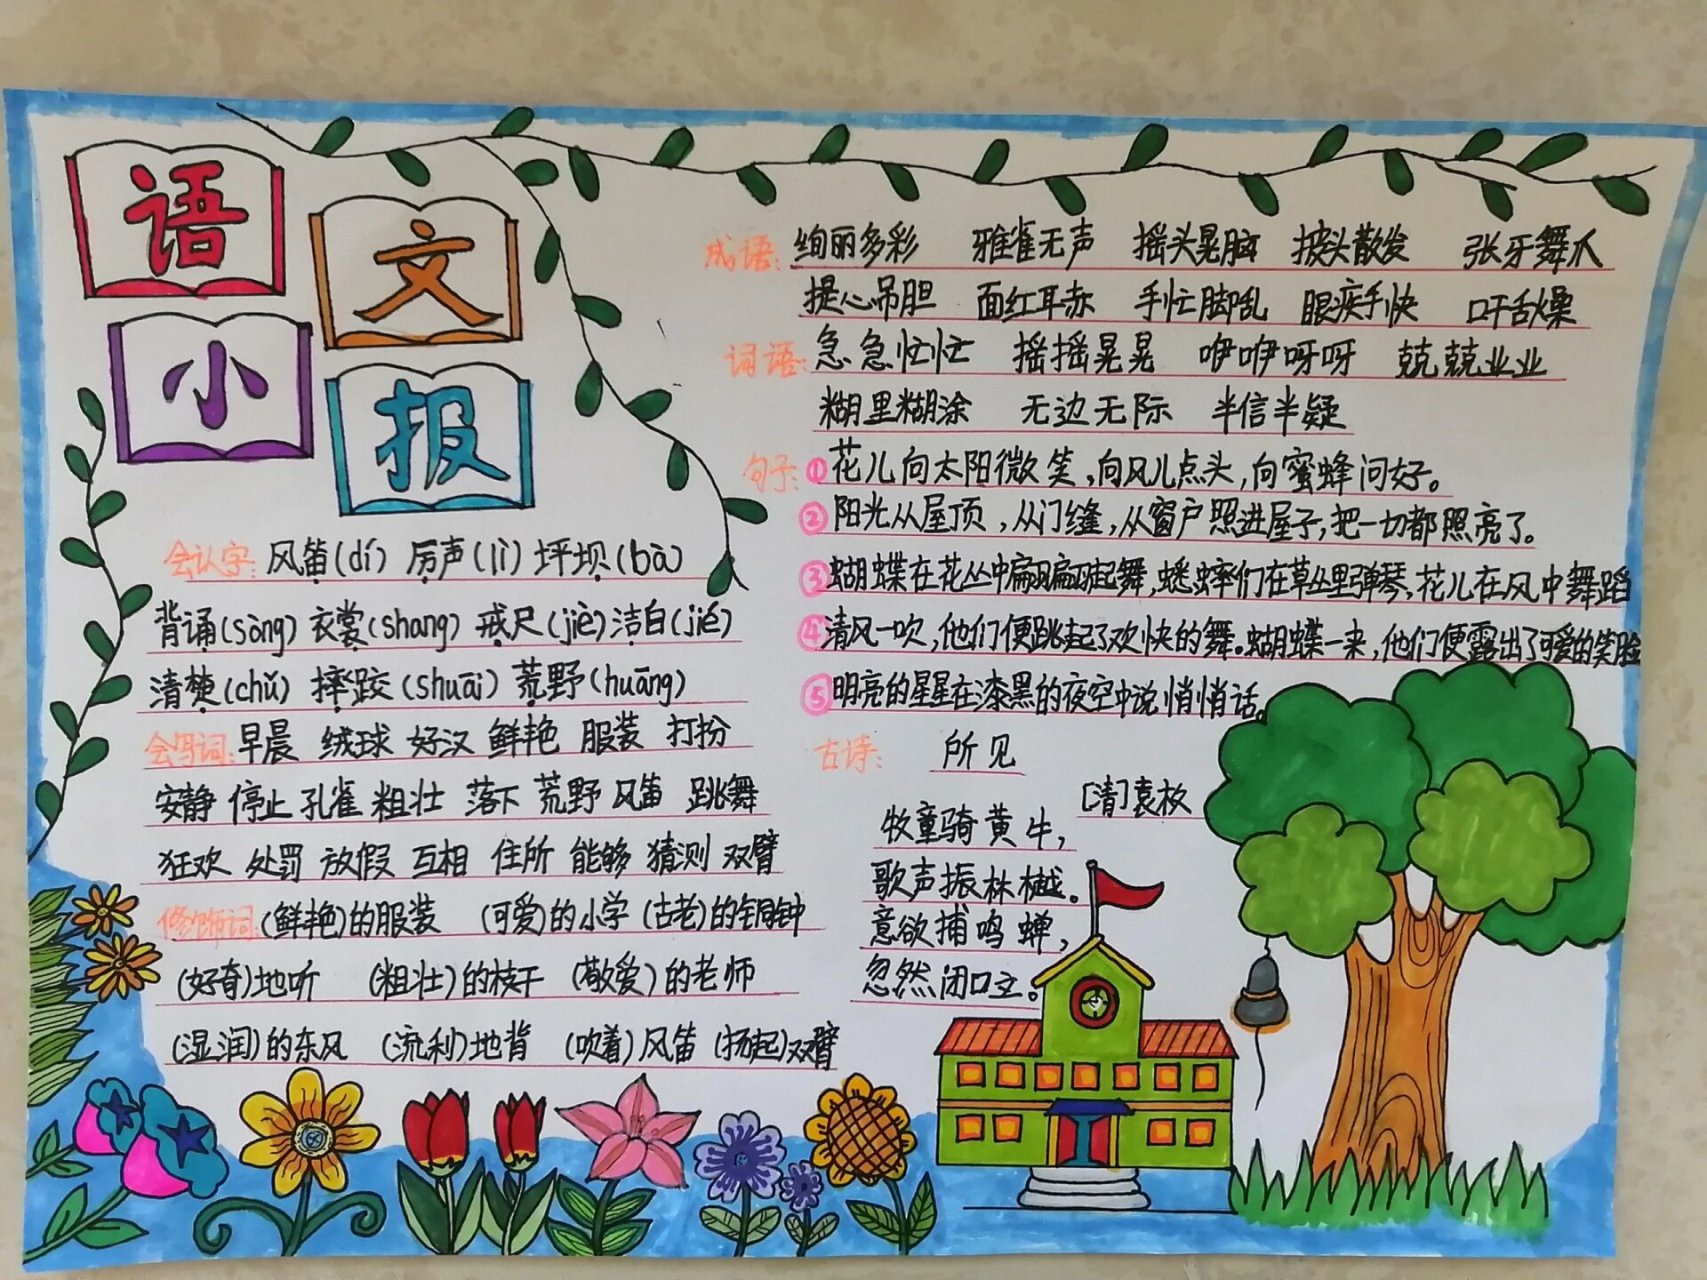 语文
小报
会认字:风笛(dí) 厉声(lì) 坪坝(bà)
背诵(sòng) 衣裳(shang) 戒尺(jiè) 洁白(jié)
清楚(chǔ) 摔跤(shuāi) 荒野(huāng)
会写词:早晨 绒球 好汉 鲜艳 服装 打扮
安静 停止 孔雀 粗壮 落下 荒野 风笛 跳舞
狂欢 处罚 放假 互相 住所 能够 猜测 双臂
修饰词:(鲜艳)的服装 (可爱)的小学 (古老)的铜钟
(好奇)地听 (粗壮)的枝干 (敬爱)的老师
(湿润)的东风 (流利)地背 (吹着)风笛 (扬起)双臂
成语:绚丽多彩 雅雀无声 摇头晃脑 披头散发 张牙舞爪
提心吊胆 面红耳赤 手忙脚乱 眼疾手快 口干舌燥
词语:急急忙忙 摇摇晃晃 咿咿呀呀 兢兢业业
糊里糊涂 无边无际 半信半疑
句子:①花儿向太阳微笑,向风儿点头,向蜜蜂问好。
②阳光从屋顶,从门缝,从窗户照进屋子,把一切都照亮了。
③蝴蝶在花丛中翩翩起舞,蟋蟀们在草丛里弹琴,花儿在风中舞蹈
④清风一吹,他们便跳起了欢快的舞。蝴蝶一来,他们便露出了可爱的笑脸
⑤明亮的星星在漆黑的夜空中说悄悄话。
古诗: 所见
[清]袁枚
牧童骑黄牛,
歌声振林樾。
意欲捕鸣蝉,
忽然闭口立。